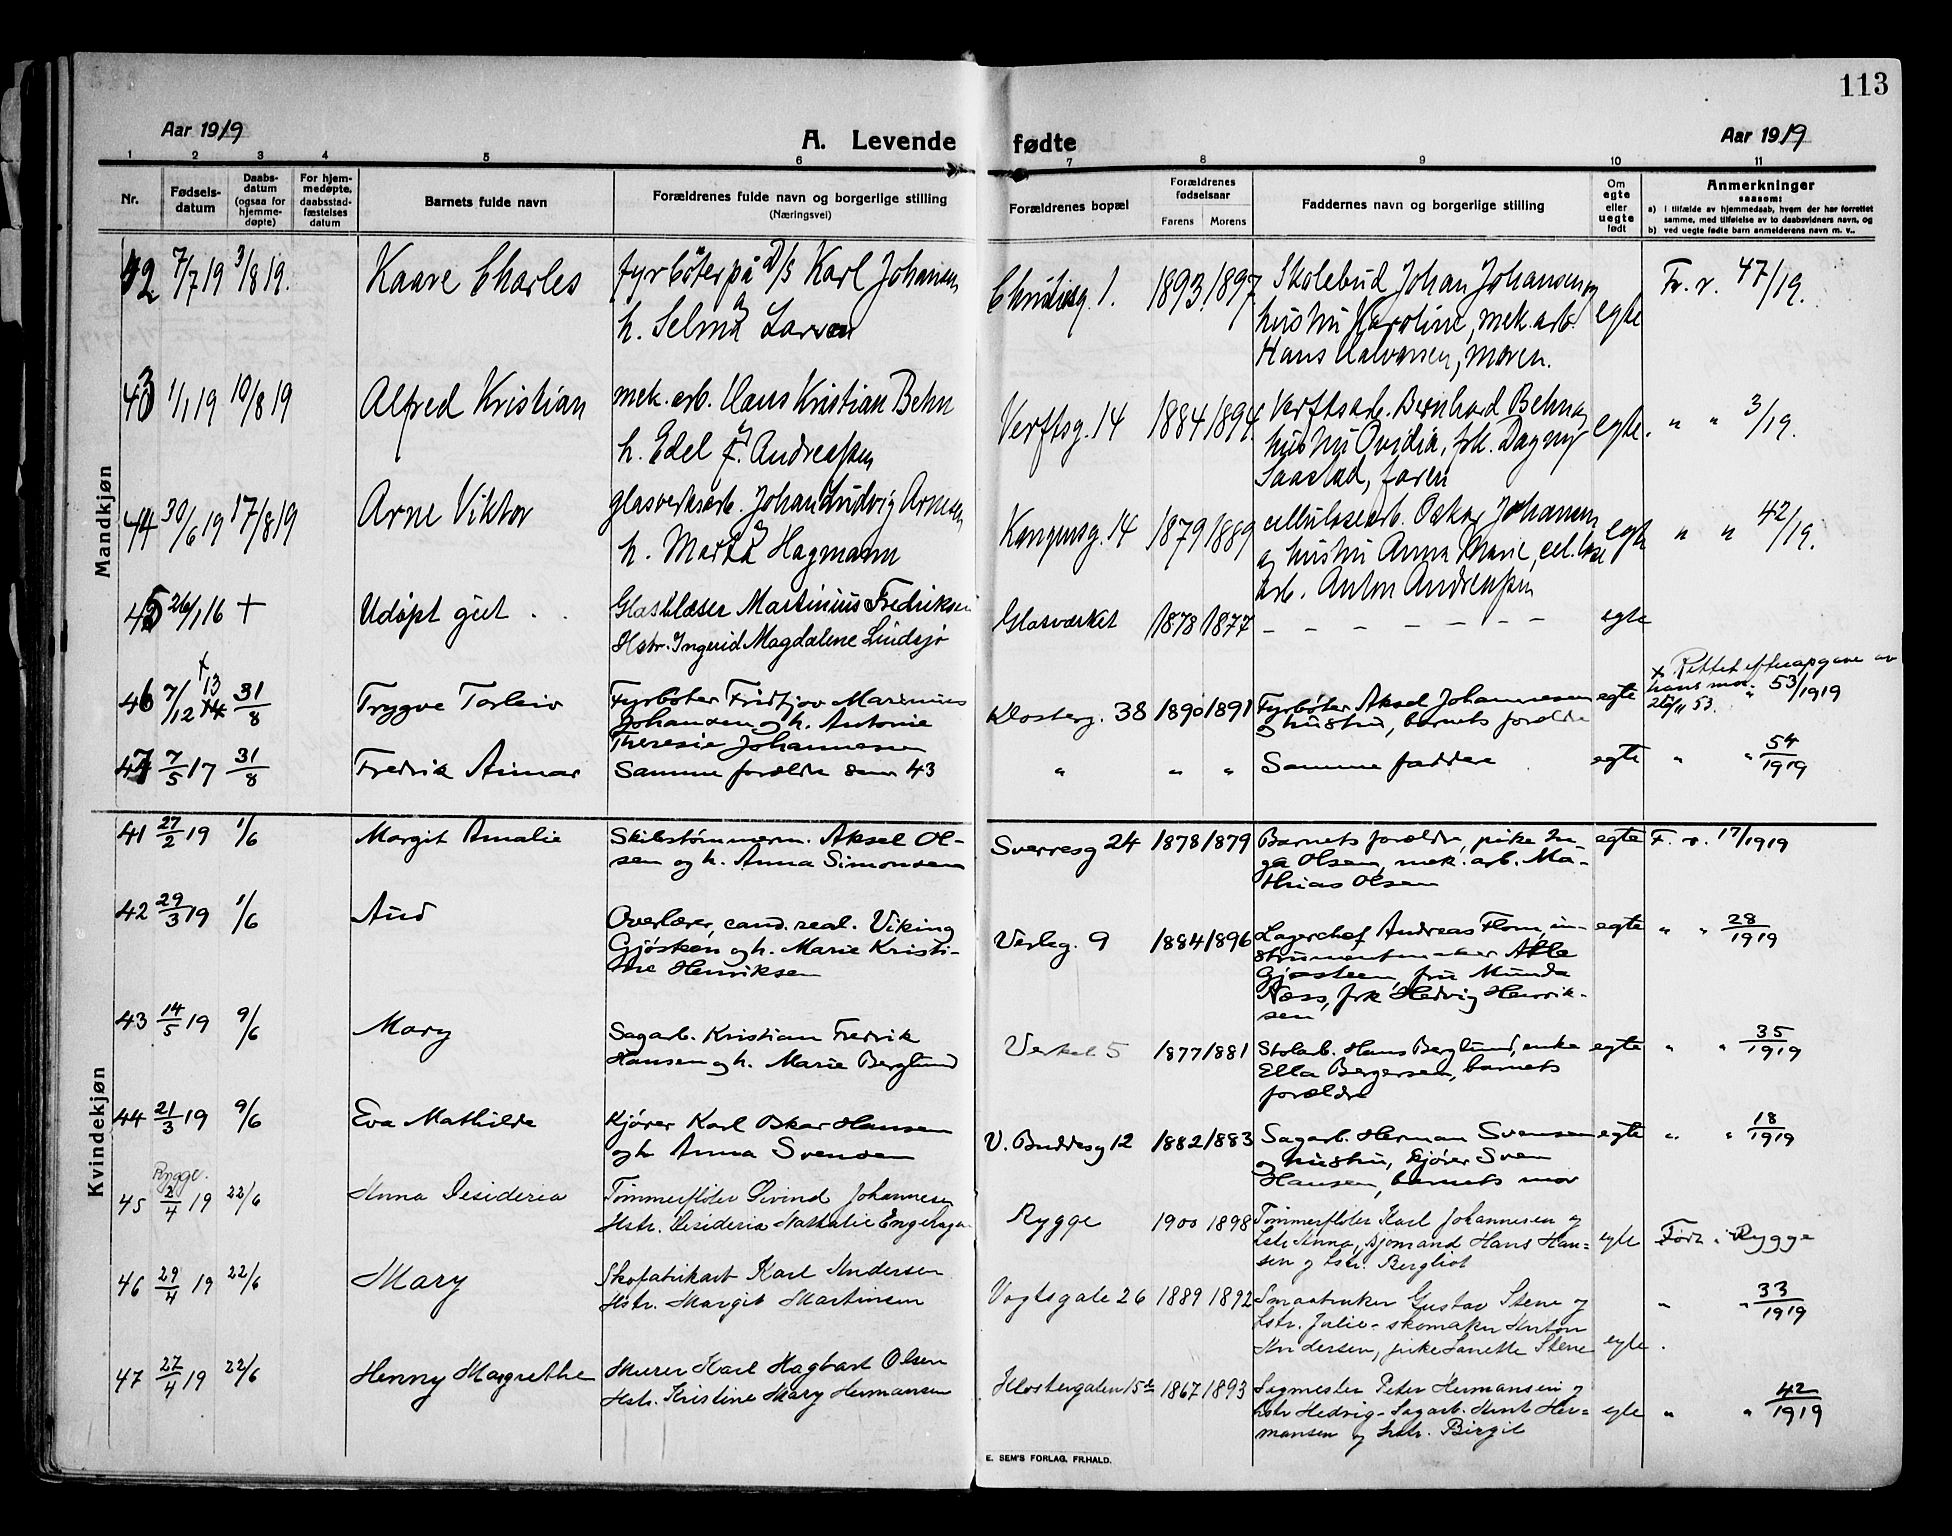 113
Aar 1919
A. Levende fødte
Aar 1919
1 2 3 4 5 6 7 8 9 10 11
Nr.
Fødsels-
datum
Daabs-
datum
(ogsaa for
hjemme-
døpte)
For hjem-
medøpte,
daabsstad-
fæstelses
datum
Barnets fulde navn
Forældrenes fulde navn og borgerlige stilling
(Næringsvei)
Forældrenes bopæl
Forældrenes
fødselsaar
Farens Morens
Faddernes navn og borgerlige stilling
Om
egte
eller
uegte
født
Anmerkninger
saasom:
a) i tilfælde av hjemmedaab, hvem der har forrettet
samme, med tilføielse av to daabsvidners navn, og
b) ved uegte fødte barn anmelderens navn m. v..
Mandkjøn
42 7/7 19 3/8 19. Kaare Charles
fyrbøter på D/S Karl Johansen
h. Selma Larsen
1893 1897
Skolebud Johan Johansen og
hustru Karoline, mek. arb.
Hans Halvorsen, moren.
egte
Fr. r. 47/19.
43 1/1 19 10/8 19 Alfred Kristian
mek. arb. Hans Kristian Behn
h. Edel F. Andreassen
Verftsg. 14 1884 1894
Verftsarb. Bernhard Behn og
hustru Ovidia, frk. Dagny
Saastad, faren
egte. " " 3/19.
44 30/6 19 17/8 19 Arne Viktor
glasverksarb. Johan Ludvig Arnesen
h. Marta Hagmann
14 1879 1889
cellulosearb. Oskar Johansen
og hustru Anna Marie,
arb. Anton Andreassen
egte " " 42/19.
45 26/1 16 + Udøpt gut
Glasblæser Martinius Fredriksen
Hstr. Ingerid Magdalene Lindsjø
Glasværket 1878 1877 – – – – – – – egte
46 7/12 x 13 14 31/8 Trygve Torleiv
Fyrbøter Fridtjov Marinius
Johansen og h. Antonie
Theresie Johannesen
Klosterg. 38 1890 1891
Fyrbøter Aksel Johannesen
og hustru, barnets forældre
egte
x Rettet efter opgave av
hans mor. " 53/1919
53.
47 7/5 17 31/8 Fredrik Aimar
Samme forældre som 43
" " " Samme faddere egte " " 54/1919
Kvindekjøn
41 27/2 19 1/6 Margit Amalie
Skibstømmerm. Aksel Ol-
sen og h. Anna Simonsen
Sverresg 24 1878 1879
Barnets forældre, pike In-
ga Olsen, mek. arb. Ma-
thias Olsen
egte F. r. 17/1919
42 29/3 19 1/6 Aud
Overlærer, cand. real. Viking
Gjøsteen og h. Marie Kristi-
ne Henriksen
Verleg. 9 1884 1896
Lagerchef Andreas Flom, in-
strumentmaker Atle
Gjøsteen, fru Munda
Næss, frk Hedvig Henrik-
sen
egte " " 28/1919
43 14/5 19 9/6 Mary
Sagarb. Kristian Fredrik
Hansen og h. Marie Berglund
5 1877 1881
Stolarb. Hans Berglund, enke
Ella Bergersen, barnets
forældre
egte " " 35/1919
44 21/3 19 9/6 Eva Mathilde
Kjører Karl Oskar Hansen
og h Anna Svensen
V. Buddesg 12 1882 1883
Sagarb. Herman Svensen
og hustru, kjører Sven
Hansen, barnets mor
egte " " 18/1919
Rygge.
45 2/4 19 22/6 Anna Desideria
Tømmerfløter Eivind Johannesen
Hstr. Desideria Nathalie
Rygge 1900 1898
Tømmerfløter Karl Johannesen og
hstr Anna, sjømand Hans Han-
sen og hstr. Bergliot
egte Født i Rygge
46 29/4 19 22/6 Mary
Skofabrikarb Karl Andersen
Hstr. Margit Martinsen
Vogtsgate 26 1889 1892
Smaabruker Gustav Stene og
hstr. Julie - skomaker Anton
Andersen, pike Lanette Stene
egte. " " 33/1919
47 27/4 19 22/6 Henny Magrethe
Murer Karl Hagbart Olsen
Hstr. Kristine Mary Hermansen
Klostergaten 15 b 1867 1893
Sagmester Peter Hermansen og
hstr Hedvig - Sagarb. Knut Her-
mansen og hstr. Birgit
egte " " 42/1919
E. SEM'S FORLAG, FR.HALD.